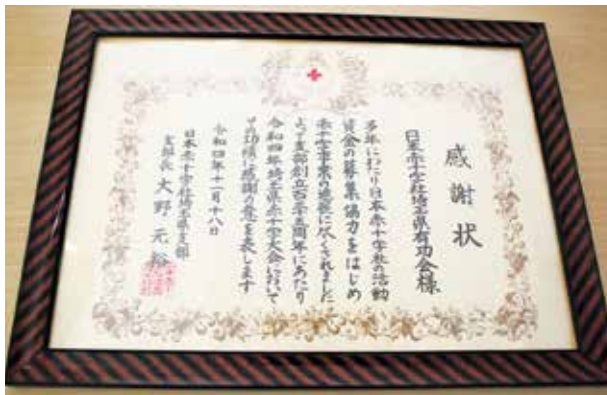 感謝状
日本赤十字社埼玉県有功会様
多年にわたり日本赤十字社の活動
資金の募集協力をはじめ
赤十字事業の進展に尽くされました
よって支部創立百三十五周年にあたり
令和四年埼玉県赤十字大会において
その功績に感謝の意を表します
令和四年十一月十八日
日本赤十字社埼玉県支部
支部長 大野元裕